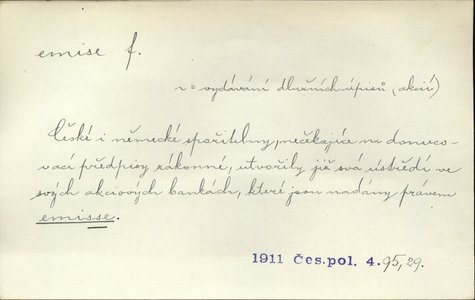 emise f.
n = vydávání dlužních úpisů (akcií)
České i německé spořitelny, nečekajíce na donuco-
vací předpisy zákonné, utvořily již svá ústředí ve
svých akciových bankách, které jsou nadány právem
emisse.
1911 Čes.pol. 4. 95, 29.